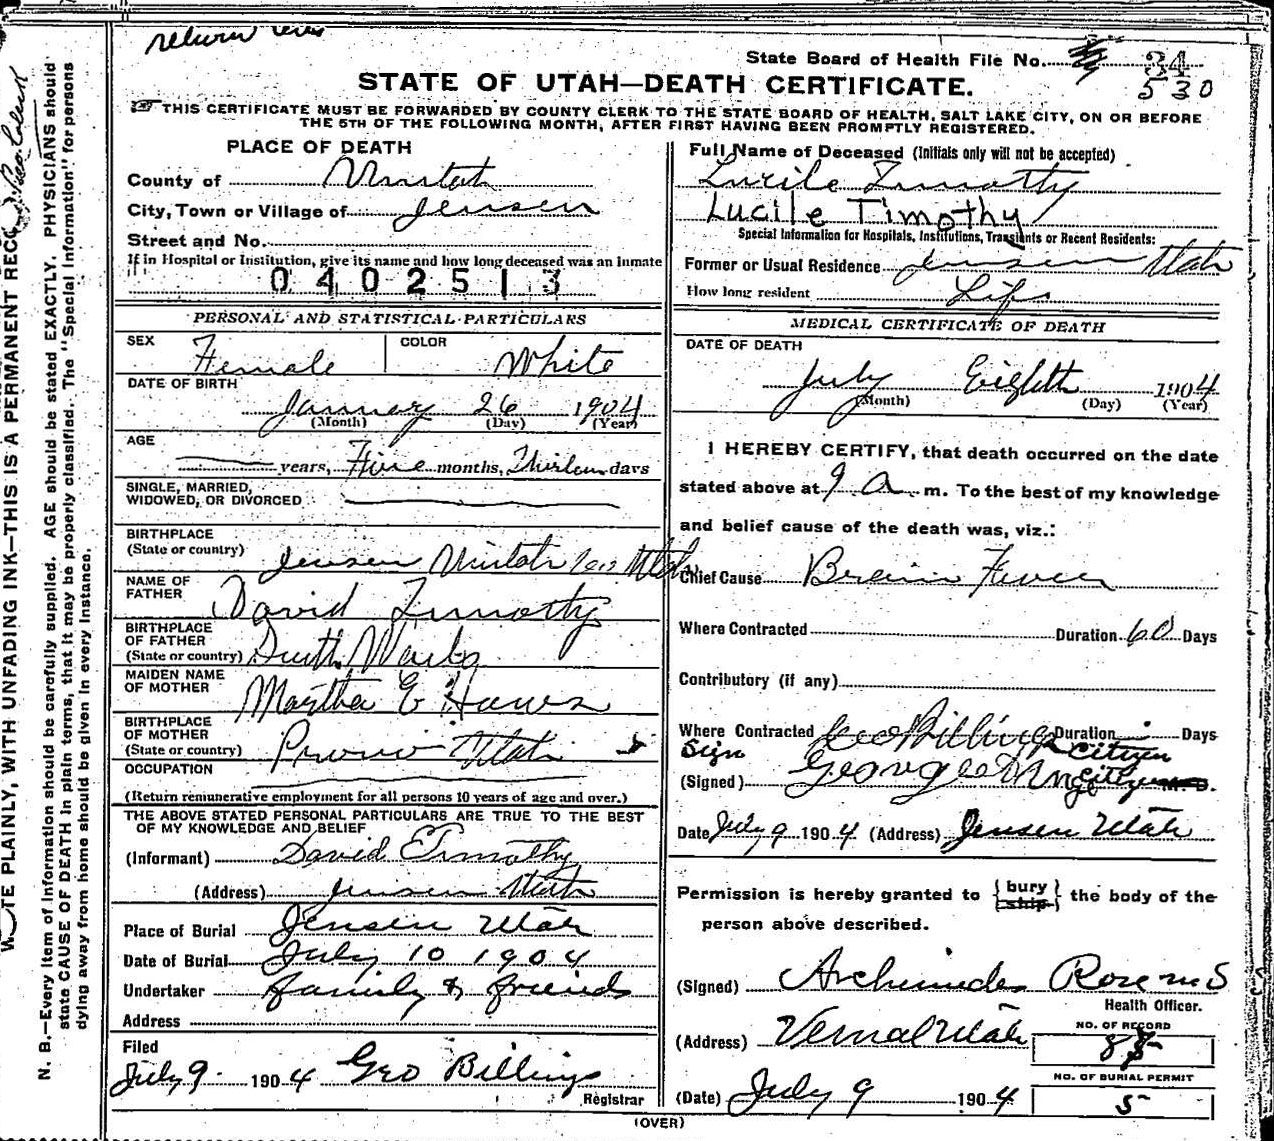 return
State Board of Health File No. 34
530
STATE OF UTAH—DEATH CERTIFICATE.
THIS CERTIFICATE MUST BE FORWARDED BY COUNTY CLERK TO THE STATE BOARD OF HEALTH, SALT LAKE CITY, ON OR BEFORE
THE 5TH OF THE FOLLOWING MONTH, AFTER FIRST HAVING BEEN PROMPTLY REGISTERED.
PLACE OF DEATH
County of Uintah
City, Town or Village of Jensen
Street and No.
If in Hospital or Institution, give its name and how long deceased was an inmate
0402513
Full Name of Deceased (Initials only will not be accepted)
Lucile Timothy
Lucile Timothy
Special Information for Hospitals, Institutions, Transients or Recent Residents:
Former or Usual Residence Jensen Utah
How long resident Life
PERSONAL AND STATISTICAL PARTICULARS
SEX Female COLOR White
DATE OF BIRTH
January 26 1904
(Month) (Day) (Year)
AGE
years, Five months, Thirteen days
SINGLE, MARRIED,
WIDOWED, OR DIVORCED
BIRTHPLACE
(State or country) Jensen Uintah Co Utah
NAME OF
FATHER David Timothy
BIRTHPLACE
OF FATHER
(State or country) South Wales
MAIDEN NAME
OF MOTHER Martha E Haws
BIRTHPLACE
OF MOTHER
(State or country) Provo Utah
OCCUPATION
(Return remunerative employment for all persons 10 years of age and over.)
THE ABOVE STATED PERSONAL PARTICULARS ARE TRUE TO THE BEST
OF MY KNOWLEDGE AND BELIEF
(Informant) David Timothy
(Address) Jensen Utah
Place of Burial Jensen Utah
Date of Burial July 10 1904
Undertaker family & friends
Address
Filed
July 9 1904 Geo Billings
Registrar
MEDICAL CERTIFICATE OF DEATH
DATE OF DEATH
July Eighth 1904
(Month) (Day) (Year)
I HEREBY CERTIFY, that death occurred on the date
stated above at 9 a m. To the best of my knowledge
and belief cause of the death was, viz.:
Chief Cause Brain Fever
Where Contracted Duration 60 Days
Contributory (if any)
Where Contracted Geo Billings Duration Days
Sign Citizen
(Signed) George Billings City M.D.
Date July 9 1904 (Address) Jensen Utah
Permission is hereby granted to {bury
ship} the body of the
person above described.
(Signed) Archimides Rose M S
Health Officer.
(Address) Vernal Utah
NO. OF RECORD
85
(Date) July 9 1904
NO. OF BURIAL PERMIT
5
(OVER)
WRITE PLAINLY, WITH UNFADING INK—THIS IS A PERMANENT RECO
N. B.—Every item of information should be carefully supplied. AGE should be stated EXACTLY. PHYSICIANS should
state CAUSE OF DEATH in plain terms, that it may be properly classified. The "Special Information" for persons
dying away from home should be given in every instance.